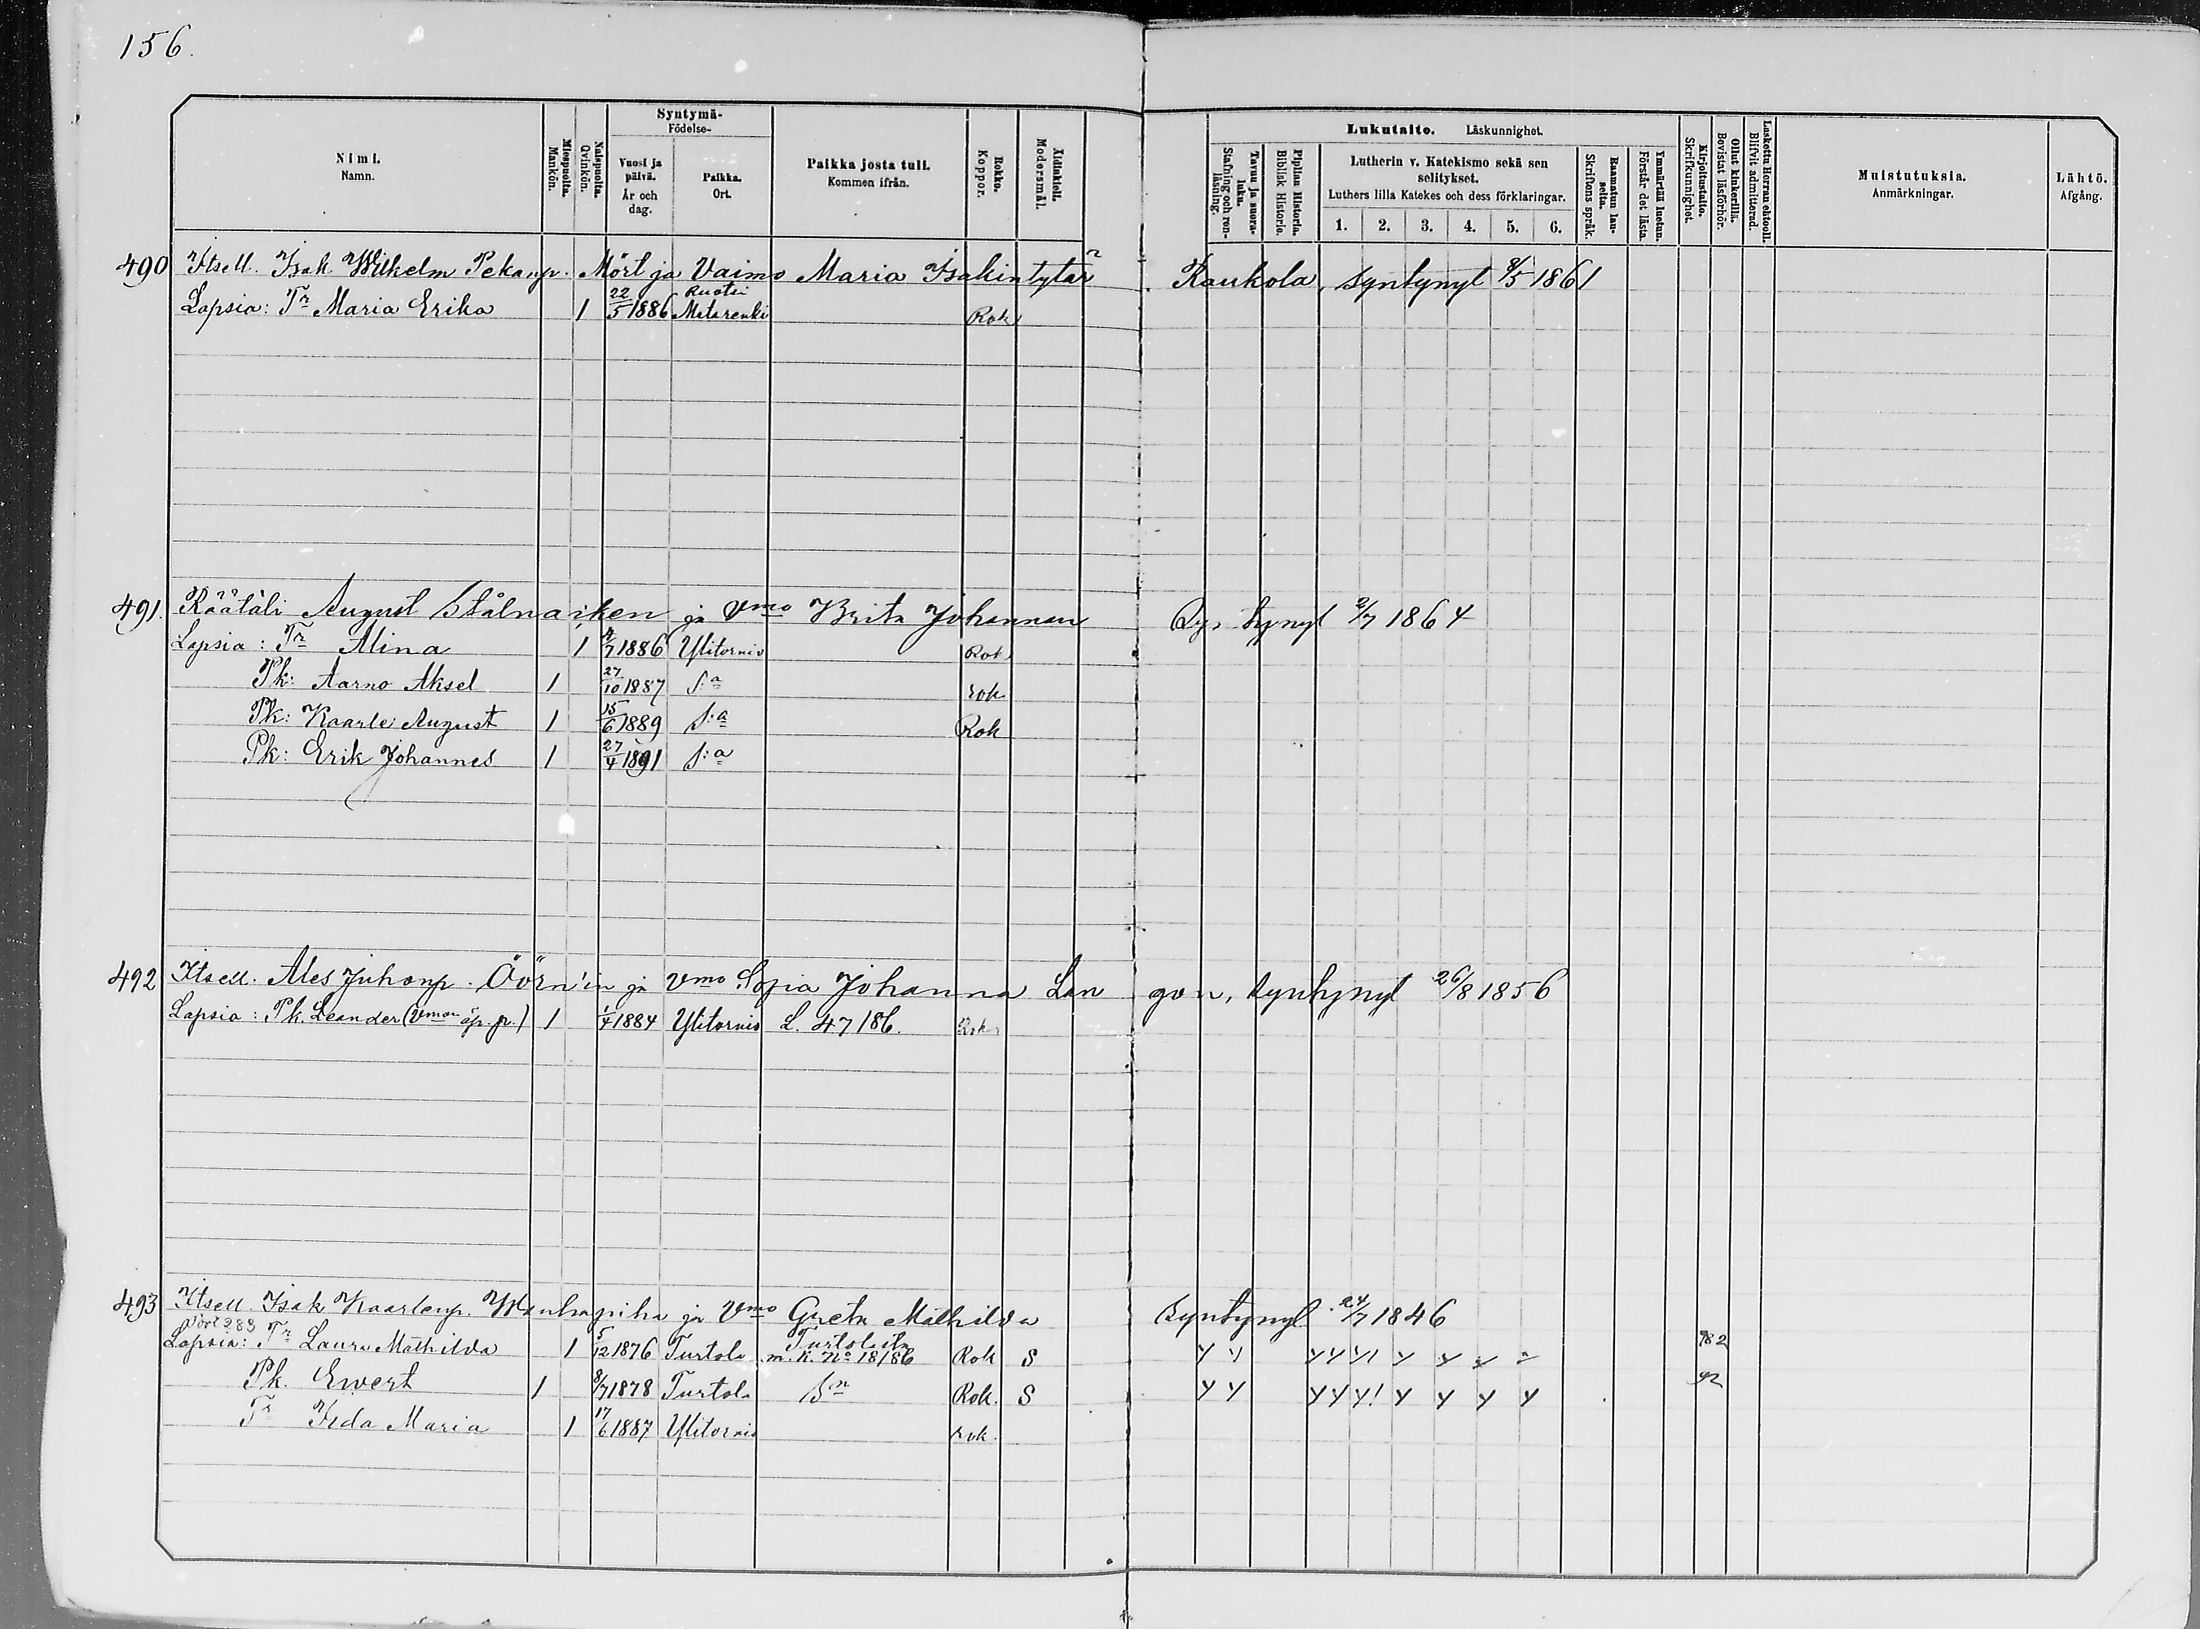 156.
Nimi.
Namn.
Miespuolta.
Mankön.
Naispuolta.
Qvinkön.
Syntymä-
Födelse-
Vuosi ja päivä.
År och dag.
Paikka.
Ort.
Paikka josta tuli.
Kommen ifrån.
Rokko.
Koppor.
Äidinkieli.
Modersmål.
Lukutaito. Läskunnighet.
Tavuu ja suora-luku.
Stafning och ren-läsning.
Piplian Historia.
Biblisk Historie.
Lutherin v. Katekismo sekä sen selitykset.
Luthers lilla Katekes och dess förklaringar.
1. 2. 3. 4. 5. 6.
Raamatun lau-seita.
Skriftens språk.
Ymmärtää luetun.
Förstår det lästa.
Kirjoitustaito.
Skrifkunnighet.
Ollut kinkerillä.
Bevistat läsförhör.
Laskettu Herran ehtooll.
Blifvit admitterad.
Muistutuksia.
Anmärkningar.
Lähtö.
Afgång.
490 Itsell. Isak Wilhelm Pekanp. Mört ja Vaimo Maria Isakintytär Raukola, syntynyt 8/5 1861
Lapsia: Tr Maria Erika 1 22/5 1886 Ruotsi Matarenki Rok
491. Räätäli August Stålnacken ja Vmo Brita Johannan synynyt 2/7 1864
Lapsia: Tr Alina 1 4/7 1886 Ylitornio Rok
Pk: Aarno Aksel 1 27/10 1887 S:a rok
Pk: Kaarle August 1 15/6 1889 S:a Rok
Pk: Erik Johannes 1 27/4 1891 S:a
492 Itsell. Ales Juhonp. Öörni'in ja vmo Sofia Johanna Lan gon, syntynyt 26/8 1856
Lapsia: Pk. Leander (vmon äp. p.) 1 1/4 1884 Ylitornio L. 47/86. Rok
493 Itsell. Isak Kaarlenp. Wanhapiha ja Vmo Greta Mathilda syntynyt 24/7 1846
283
Lapsia: Tr Laura Mathilda 1 5/12 1876 Turtola Turtolasta m. k. No 18/86 Rok S
Pk. Ewert 1 8/7 1878 Turtola Sn Rok. S
Tr Iida Maria 1 17/6 1887 Ylitornio rok.